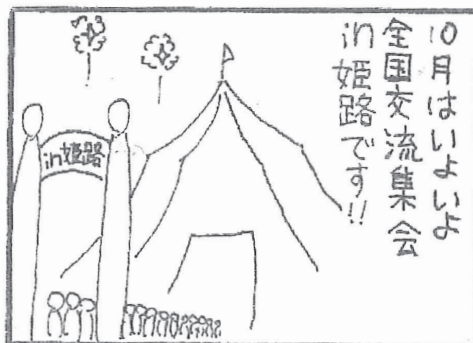 10月はいよいよ
全国交流集会
in姫路です!!
in姫路